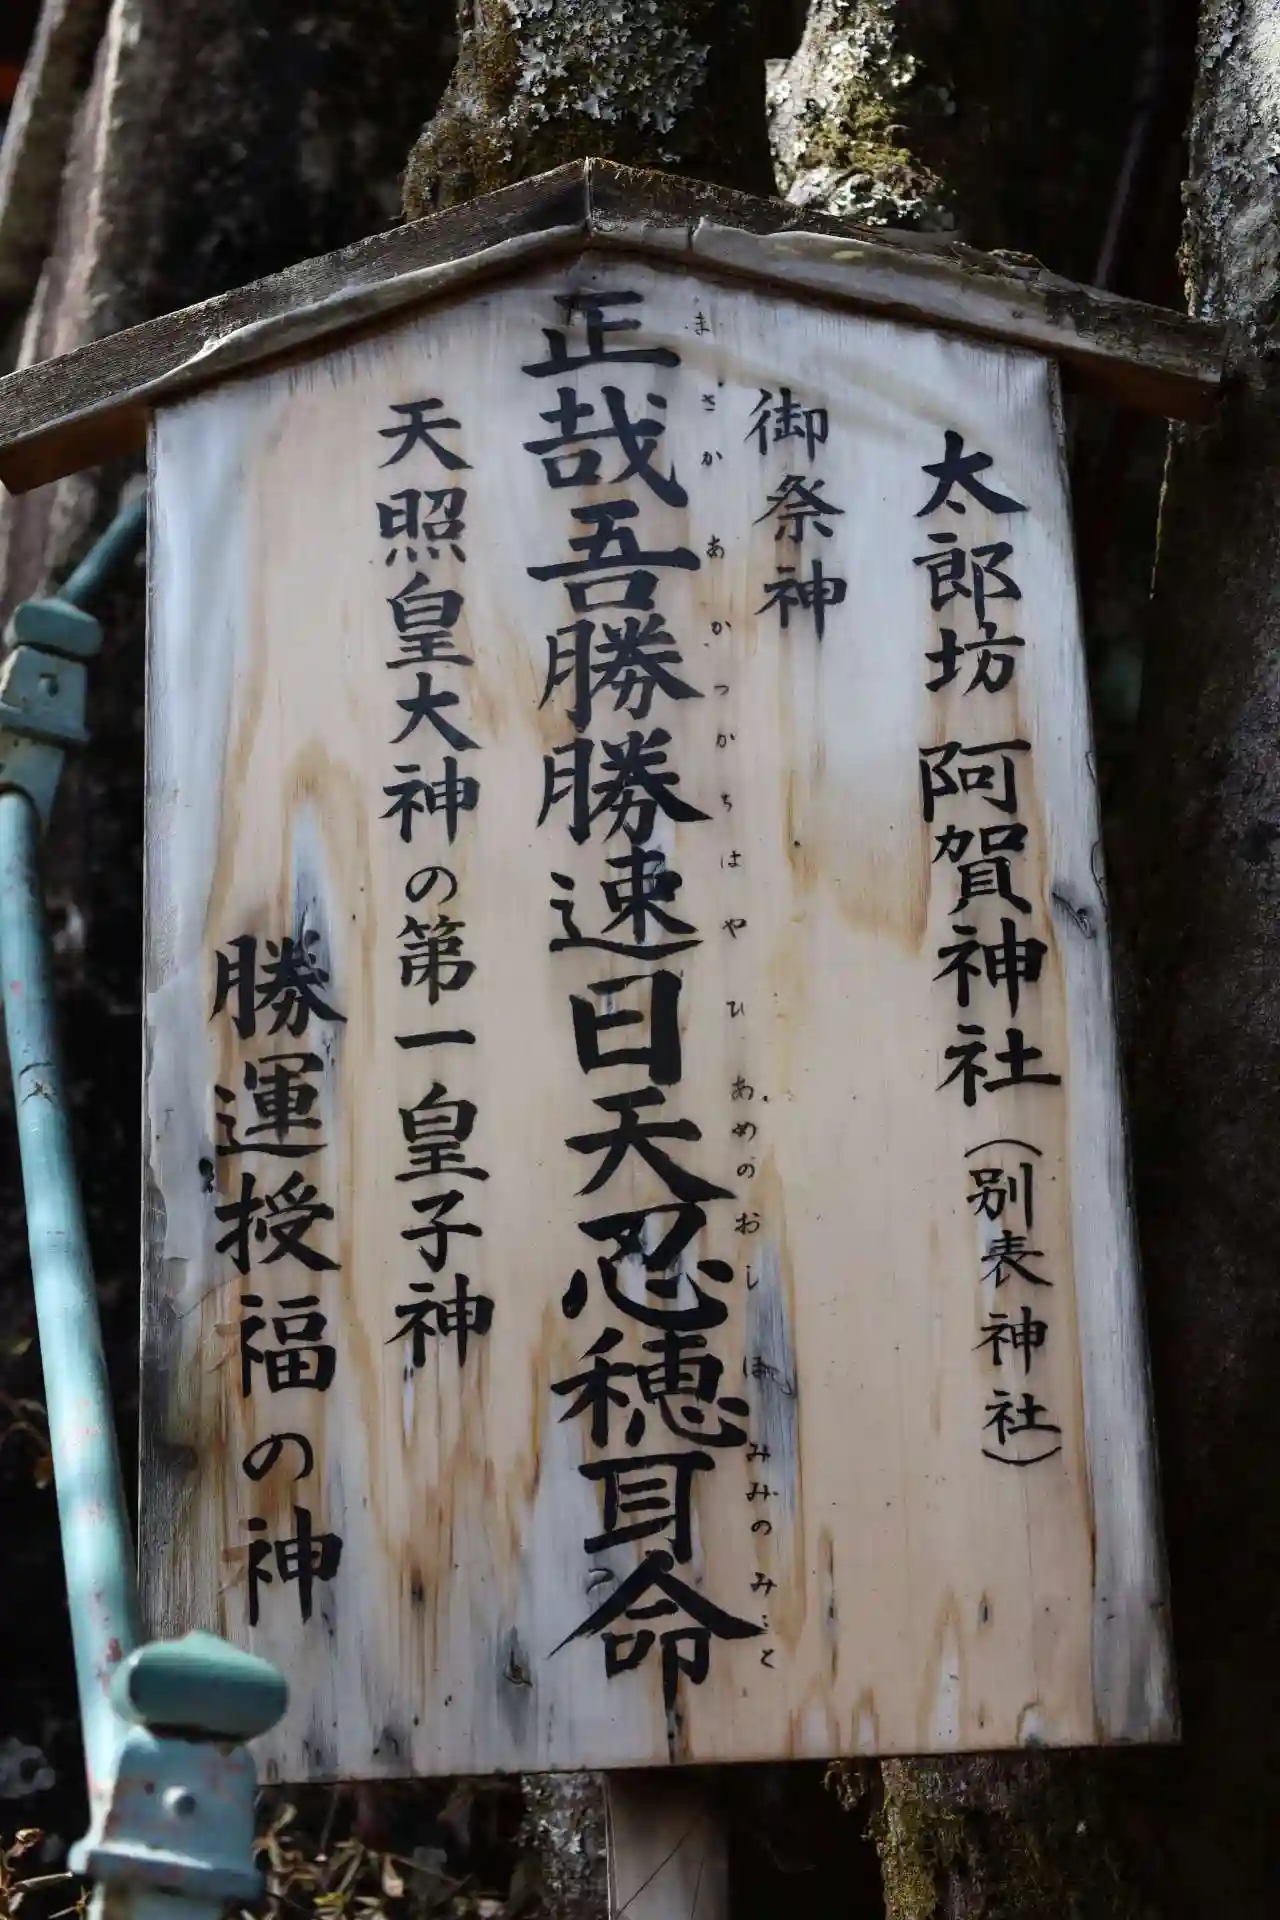 太郎坊 阿賀神社（別表神社）
御祭神
正哉吾勝勝速日天忍穂耳命
まさかあかつかちはやひあめのおしほみみのみこと
天照皇大神の第一皇子神
勝運授福の神